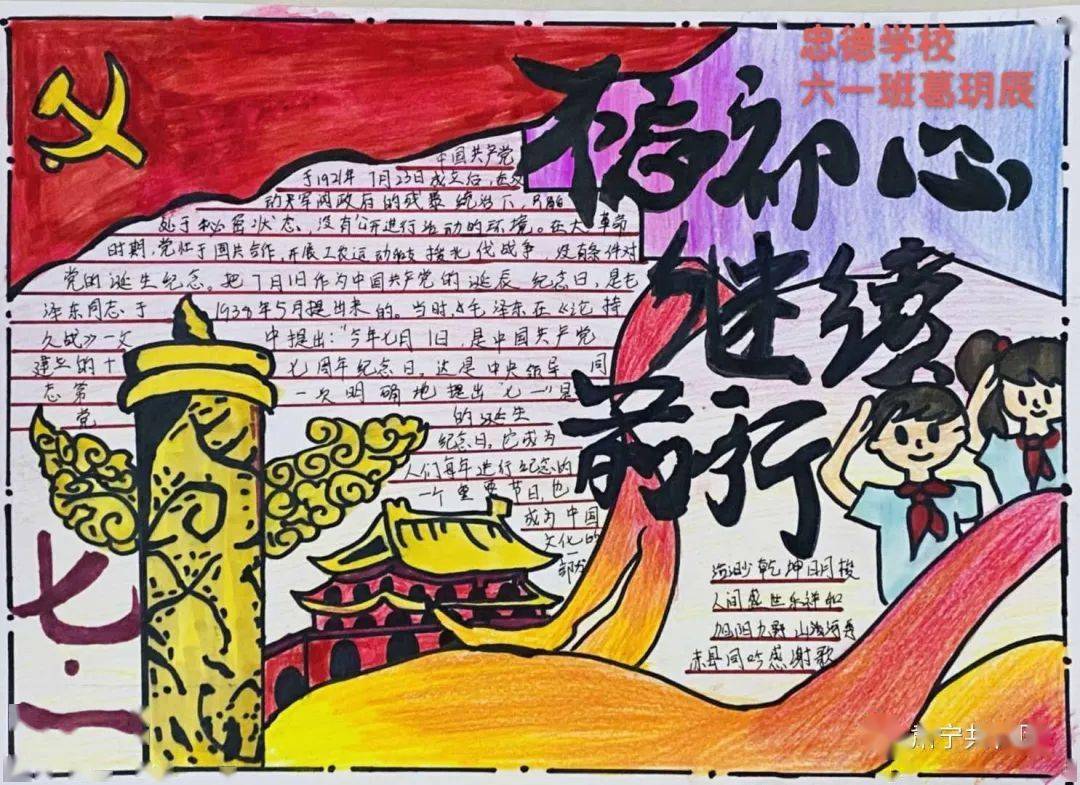 忠德学校
六一班葛玥辰
不忘初心
继续
前行
中国共产党
于1921年7月23日成立后,在反
动军阀政府的残暴统治下,只能
处于秘密状态,没有公开进行活动的环境。在大革命
时期,党忙于国共合作,开展工农运动和支援北伐战争,没有条件对
党的诞生纪念。把7月1日作为中国共产党的诞辰纪念日,是毛
泽东同志于1938年5月提出来的。当时,毛泽东在《论持
久战》一文中提出:“今年七月1日,是中国共产党
建立的十七周年纪念日。这是中央领导同
志第一次明确地提出“七一”是
党的诞生
纪念日,它成为
人们每年进行纪念的
一个重要节日,也
成为中国
文化的一
部分
七·一
日月梭
人间盛世乐祥和
旭阳九野山河秀
赤县同吟感谢歌